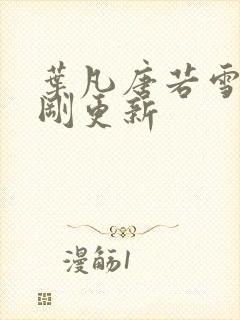 葉凡唐若雪
剛更新
漫觞1